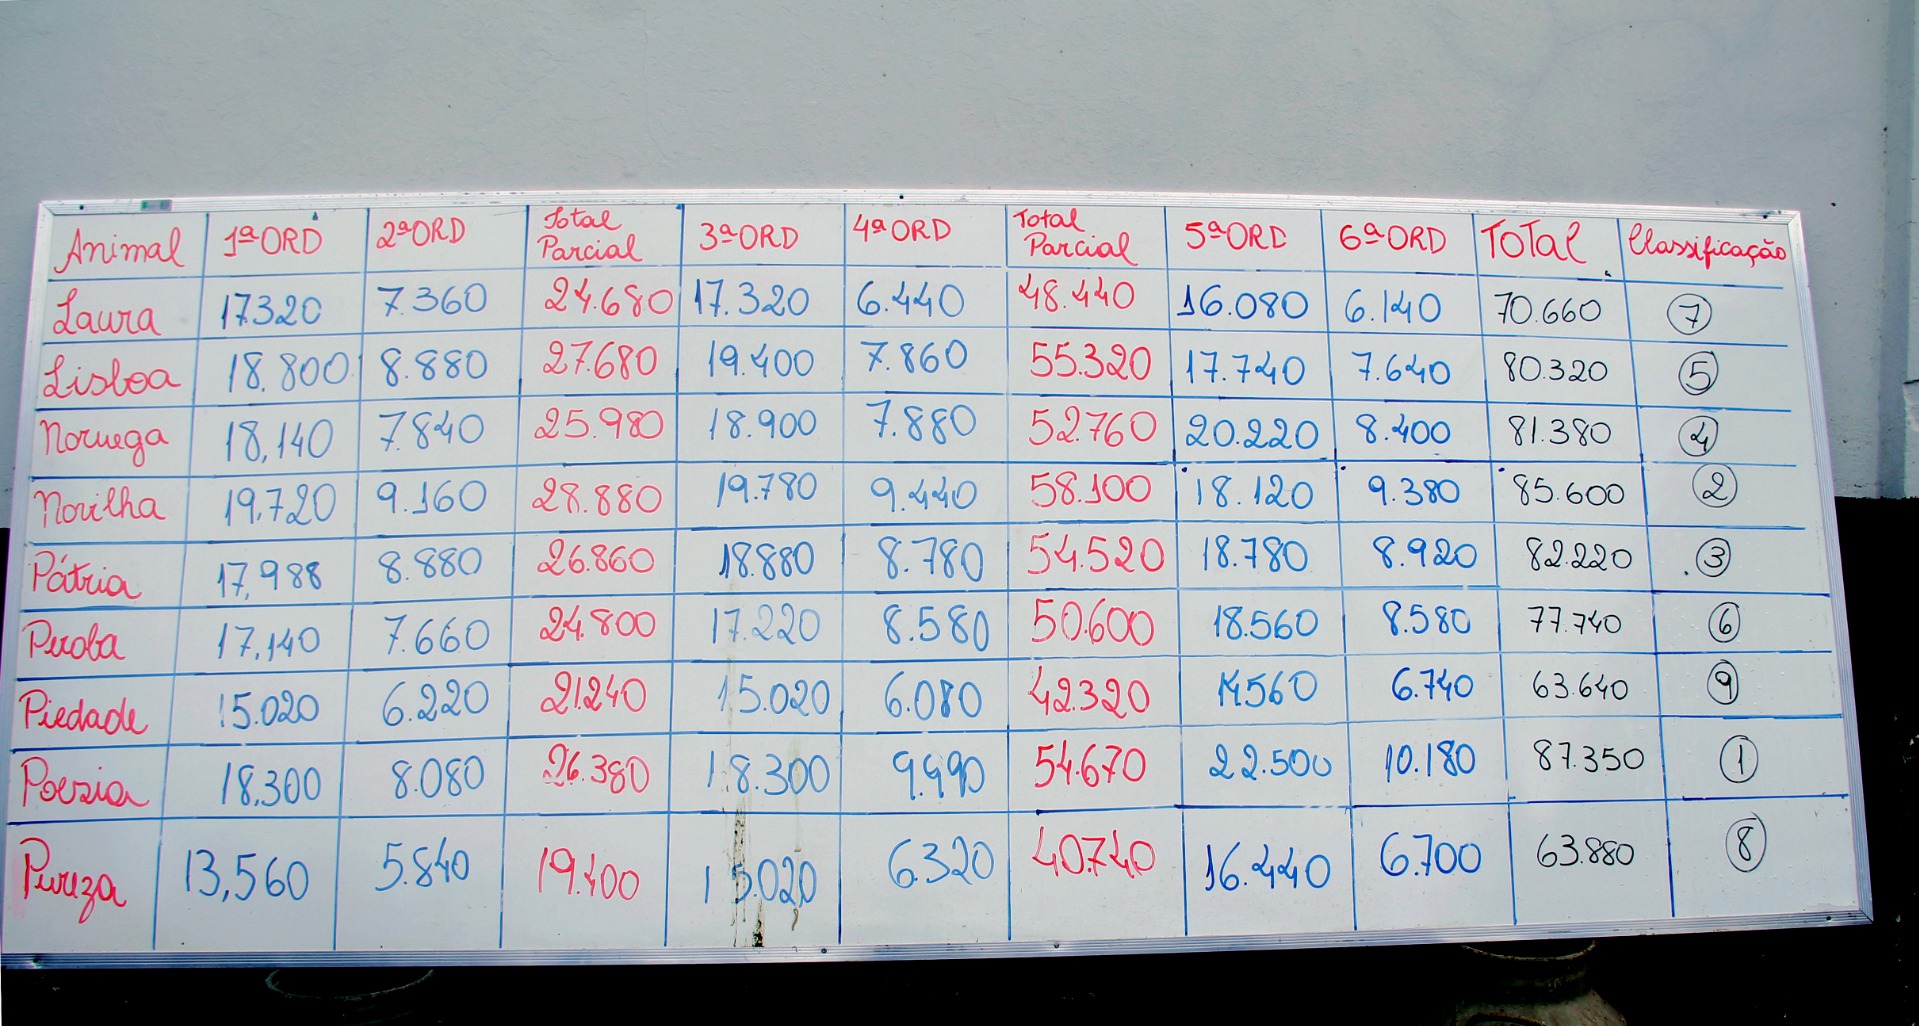 Animal 1ªORD 2ªORD Total Parcial 3ªORD 4ªORD Total Parcial 5ªORD 6ªORD TOTAL Classificação
Laura 17320 7.360 24.680 17.320 6.440 48.440 16.080 6.140 70.660 7
Lisboa 18.800 8.880 27.680 19.400 7.860 55.320 17.740 7.640 80.320 5
Noruega 18,140 7.840 25.980 18.900 7.880 52.760 20.220 8.400 81.380 4
Novilha 19,720 9.160 28.880 19.780 9.440 58.100 18.120 9.380 85.600 2
Pátria 17,988 8.880 26.860 18.880 8.780 54.520 18.780 8.920 82.220 3
Peroba 17,140 7.660 24.800 17.220 8.580 50.600 18.560 8.580 77.740 6
Piedade 15.020 6.220 21.240 15.020 6.080 42.320 14.560 6.740 63.640 9
Poesia 18,300 8.080 26.380 18.300 9.990 54.670 22.500 10.180 87.350 1
Pureza 13,560 5.840 19.400 15.020 6.320 40.740 16.440 6.700 63.880 8